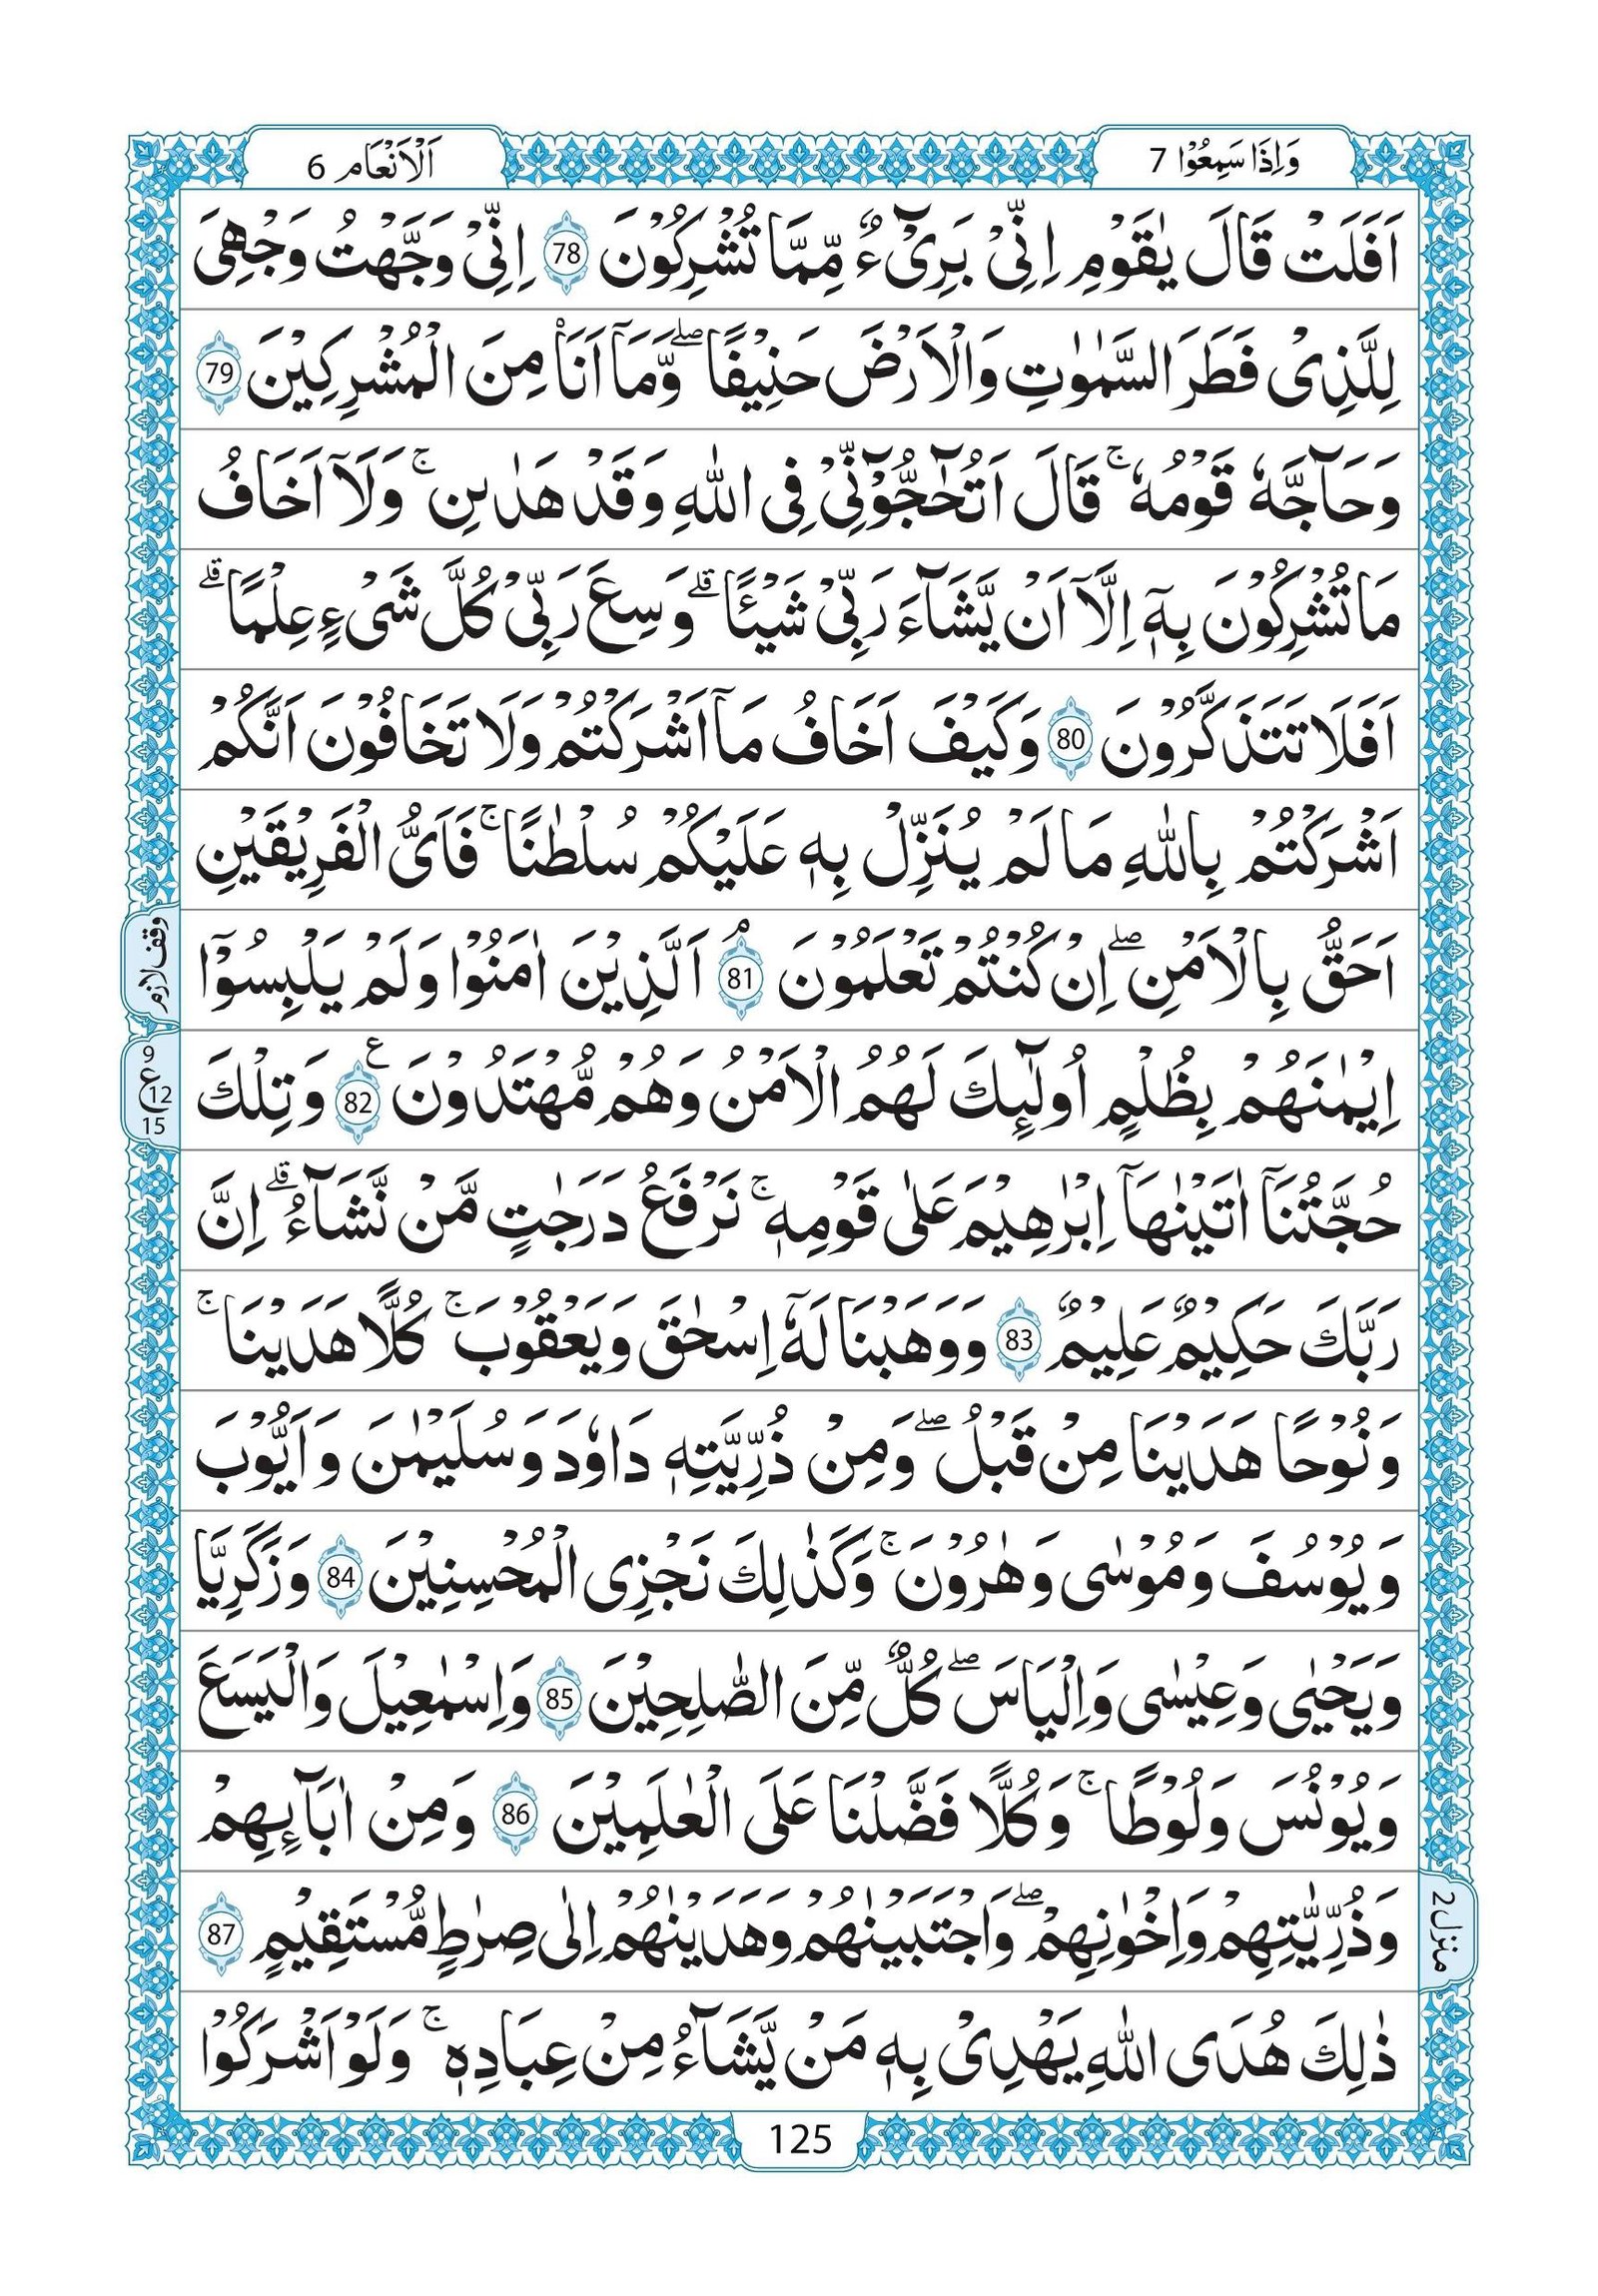 وَاِذَا سَمِعُوْا 7
اَلْاَنْعَام 6
اَفَلَتْ قَالَ يٰقَوْمِ اِنِّىْ بَرِىْٓءٌ مِّمَّا تُشْرِكُوْنَ 78 اِنِّىْ وَجَّهْتُ وَجْهِىَ
لِلَّذِىْ فَطَرَ السَّمٰوٰتِ وَالْاَرْضَ حَنِيْفًا ۖ وَّمَآ اَنَا۠ مِنَ الْمُشْرِكِيْنَ 79
وَحَآجَّهٗ قَوْمُهٗ ۚ قَالَ اَتُحٰٓجُّوْٓنِّىْ فِى اللّٰهِ وَقَدْ هَدٰىنِ ۚ وَلَآ اَخَافُ
مَا تُشْرِكُوْنَ بِهٖٓ اِلَّآ اَنْ يَّشَآءَ رَبِّىْ شَيْـًٔا ۗ وَسِعَ رَبِّىْ كُلَّ شَىْءٍ عِلْمًا ۗ
اَفَلَا تَتَذَكَّرُوْنَ 80 وَكَيْفَ اَخَافُ مَآ اَشْرَكْتُمْ وَلَا تَخَافُوْنَ اَنَّكُمْ
اَشْرَكْتُمْ بِاللّٰهِ مَا لَمْ يُنَزِّلْ بِهٖ عَلَيْكُمْ سُلْطٰنًا ۚ فَاَىُّ الْفَرِيْقَيْنِ
اَحَقُّ بِالْاَمْنِ ۖ اِنْ كُنْتُمْ تَعْلَمُوْنَ ۘ 81 اَلَّذِيْنَ اٰمَنُوْا وَلَمْ يَلْبِسُوْٓا
وقف لازم
اِيْمٰنَهُمْ بِظُلْمٍ اُولٰٓئِكَ لَهُمُ الْاَمْنُ وَهُمْ مُّهْتَدُوْنَ ع 82 وَتِلْكَ
9 ع 12 15
حُجَّتُنَآ اٰتَيْنٰهَآ اِبْرٰهِيْمَ عَلٰى قَوْمِهٖ ۚ نَرْفَعُ دَرَجٰتٍ مَّنْ نَّشَآءُ ۗ اِنَّ
رَبَّكَ حَكِيْمٌ عَلِيْمٌ 83 وَوَهَبْنَا لَهٗٓ اِسْحٰقَ وَيَعْقُوْبَ ۚ كُلًّا هَدَيْنَا ۚ
وَنُوْحًا هَدَيْنَا مِنْ قَبْلُ ۖ وَمِنْ ذُرِّيَّتِهٖ دَاوٗدَ وَسُلَيْمٰنَ وَاَيُّوْبَ
وَيُوْسُفَ وَمُوْسٰى وَهٰرُوْنَ ۚ وَكَذٰلِكَ نَجْزِى الْمُحْسِنِيْنَ 84 وَزَكَرِيَّا
وَيَحْيٰى وَعِيْسٰى وَاِلْيَاسَ ۖ كُلٌّ مِّنَ الصّٰلِحِيْنَ 85 وَاِسْمٰعِيْلَ وَالْيَسَعَ
وَيُوْنُسَ وَلُوْطًا ۚ وَكُلًّا فَضَّلْنَا عَلَى الْعٰلَمِيْنَ 86 وَمِنْ اٰبَآئِهِمْ
وَذُرِّيّٰتِهِمْ وَاِخْوٰنِهِمْ ۖ وَاجْتَبَيْنٰهُمْ وَهَدَيْنٰهُمْ اِلٰى صِرٰطٍ مُّسْتَقِيْمٍ 87
منزل 2
ذٰلِكَ هُدَى اللّٰهِ يَهْدِىْ بِهٖ مَنْ يَّشَآءُ مِنْ عِبَادِهٖ ۚ وَلَوْ اَشْرَكُوْا
125